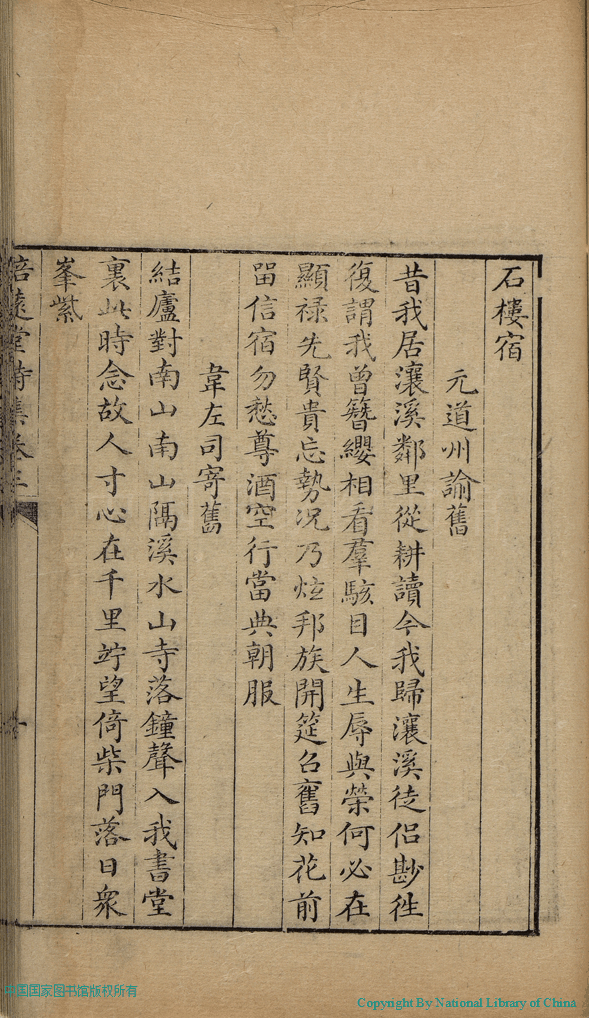 石樓宿
元道州諭舊
昔我居瀼溪鄰里從耕讀今我歸瀼溪徒侶尠徃
復謂我曾簪纓相看羣駭目人生辱與榮何必在
顯祿先賢貴忘勢況乃炫邦族開筵召舊知花前
留信宿勿愁尊酒空行當典朝服
韋左司寄舊
結廬對南山南山隔溪水山寺落鐘聲入我書堂
裏此時念故人寸心在千里竚望倚柴門落日衆
峯紫
培遠堂詩集卷三
中国国家图书馆版权所有
Copyright By National Library of China